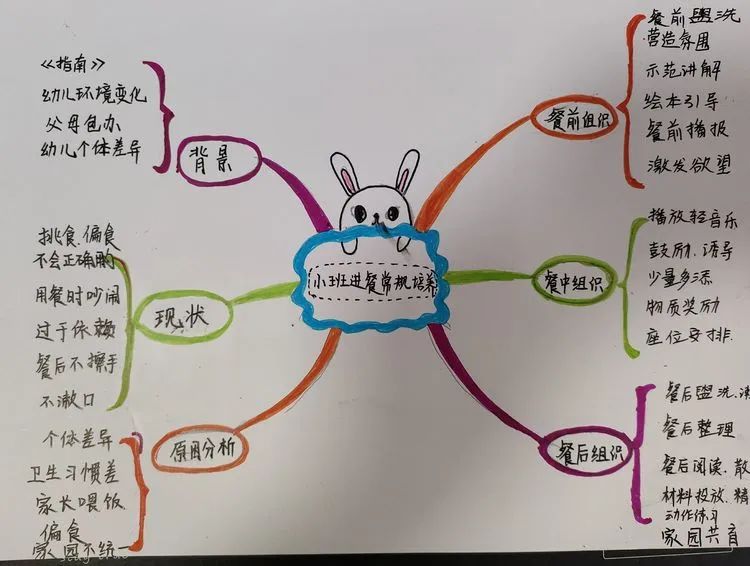 小班进餐常规培养
背景
《指南》
幼儿环境变化
父母包办
幼儿个体差异
现状
挑食、偏食
不会正确的
用餐时吵闹
过于依赖
餐后不擦手
不漱口
原因分析
个体差异
卫生习惯差
家长喂饭
偏食
家园不统一
餐前组织
餐前盥洗
营造氛围
示范讲解
绘本引导
餐前播报
激发欲望
餐中组织
播放轻音乐
鼓励、诱导
少量多添
物质奖励
座位安排
餐后组织
餐后盥洗、
餐后整理
餐后阅读、散
材料投放、精
动作练习
家园共育